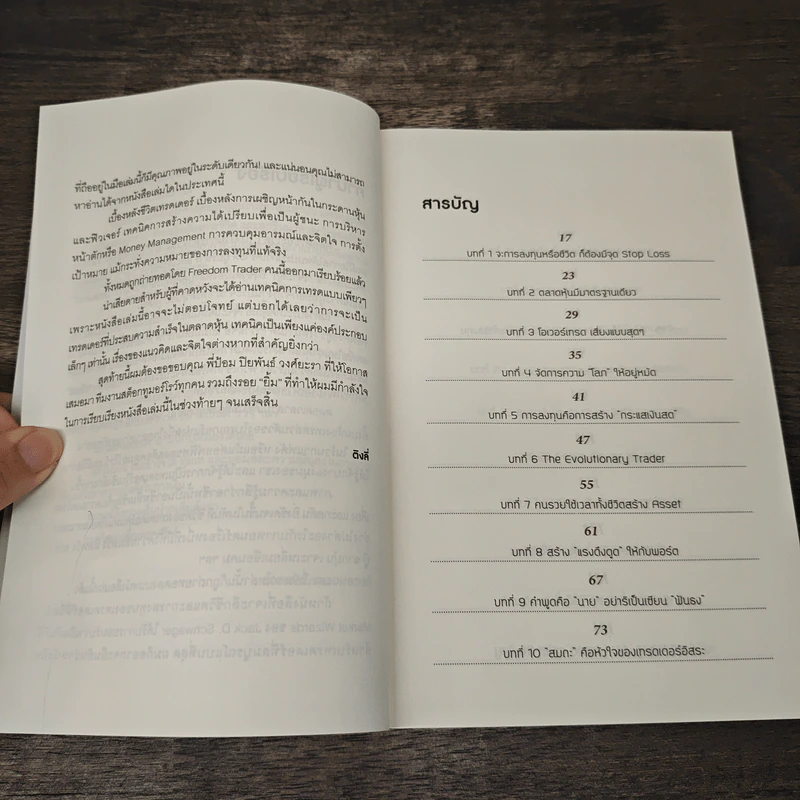 ที่ถืออยู่ในมือเล่มนี้ก็มีคุณภาพอยู่ในระดับเดียวกัน! และแน่นอนคุณไม่สามารถ
หาอ่านได้จากหนังสือเล่มใดในประเทศนี้
เบื้องหลังชีวิตเทรดเดอร์ เบื้องหลังการเผชิญหน้ากันในกระดานหุ้น
และฟิวเจอร์ เทคนิคการสร้างความได้เปรียบเพื่อเป็นผู้ชนะ การบริหาร
หน้าตักหรือ Money Management การควบคุมอารมณ์และจิตใจ การตั้ง
เป้าหมาย แม้กระทั่งความหมายของการลงทุนที่แท้จริง
ทั้งหมดถูกถ่ายทอดโดย Freedom Trader คนนี้ออกมาเรียบร้อยแล้ว
น่าเสียดายสำหรับผู้ที่คาดหวังจะได้อ่านเทคนิคการเทรดแบบเพียวๆ
เพราะหนังสือเล่มนี้อาจจะไม่ตอบโจทย์ แต่บอกได้เลยว่าการจะเป็น
เทรดเดอร์ที่ประสบความสำเร็จในตลาดหุ้น เทคนิคเป็นเพียงแค่องค์ประกอบ
เล็กๆ เท่านั้น เรื่องของแนวคิดและจิตใจต่างหากที่สำคัญยิ่งกว่า
สุดท้ายนี้ผมต้องขอขอบคุณ พี่ป้อม ปิยพันธ์ วงศ์ยะรา ที่ให้โอกาส
เสมอมา ทีมงานสต็อกทูมอร์โรว์ทุกคน รวมถึงรอย "ยิ้ม" ที่ทำให้ผมมีกำลังใจ
ในการเรียบเรียงหนังสือเล่มนี้ในช่วงท้ายๆ จนเสร็จสิ้น
ติงลี่
สารบัญ
17
บทที่ 1 จะการลงทุนหรือชีวิต ก็ต้องมีจุด Stop Loss
23
บทที่ 2 ตลาดหุ้นมีมาตรฐานเดียว
29
บทที่ 3 โอเวอร์เทรด เสี่ยงแบบสุดๆ
35
บทที่ 4 จัดการความ "โลภ" ให้อยู่หมัด
41
บทที่ 5 การลงทุนคือการสร้าง "กระแสเงินสด"
47
บทที่ 6 The Evolutionary Trader
55
บทที่ 7 คนรวยใช้เวลาทั้งชีวิตสร้าง Asset
61
บทที่ 8 สร้าง "แรงดึงดูด" ให้กับพอร์ต
67
บทที่ 9 คำพูดคือ "นาย" อย่าริเป็นเซียน "ฟันธง"
73
บทที่ 10 "สมถะ" คือหัวใจของเทรดเดอร์อิสระ